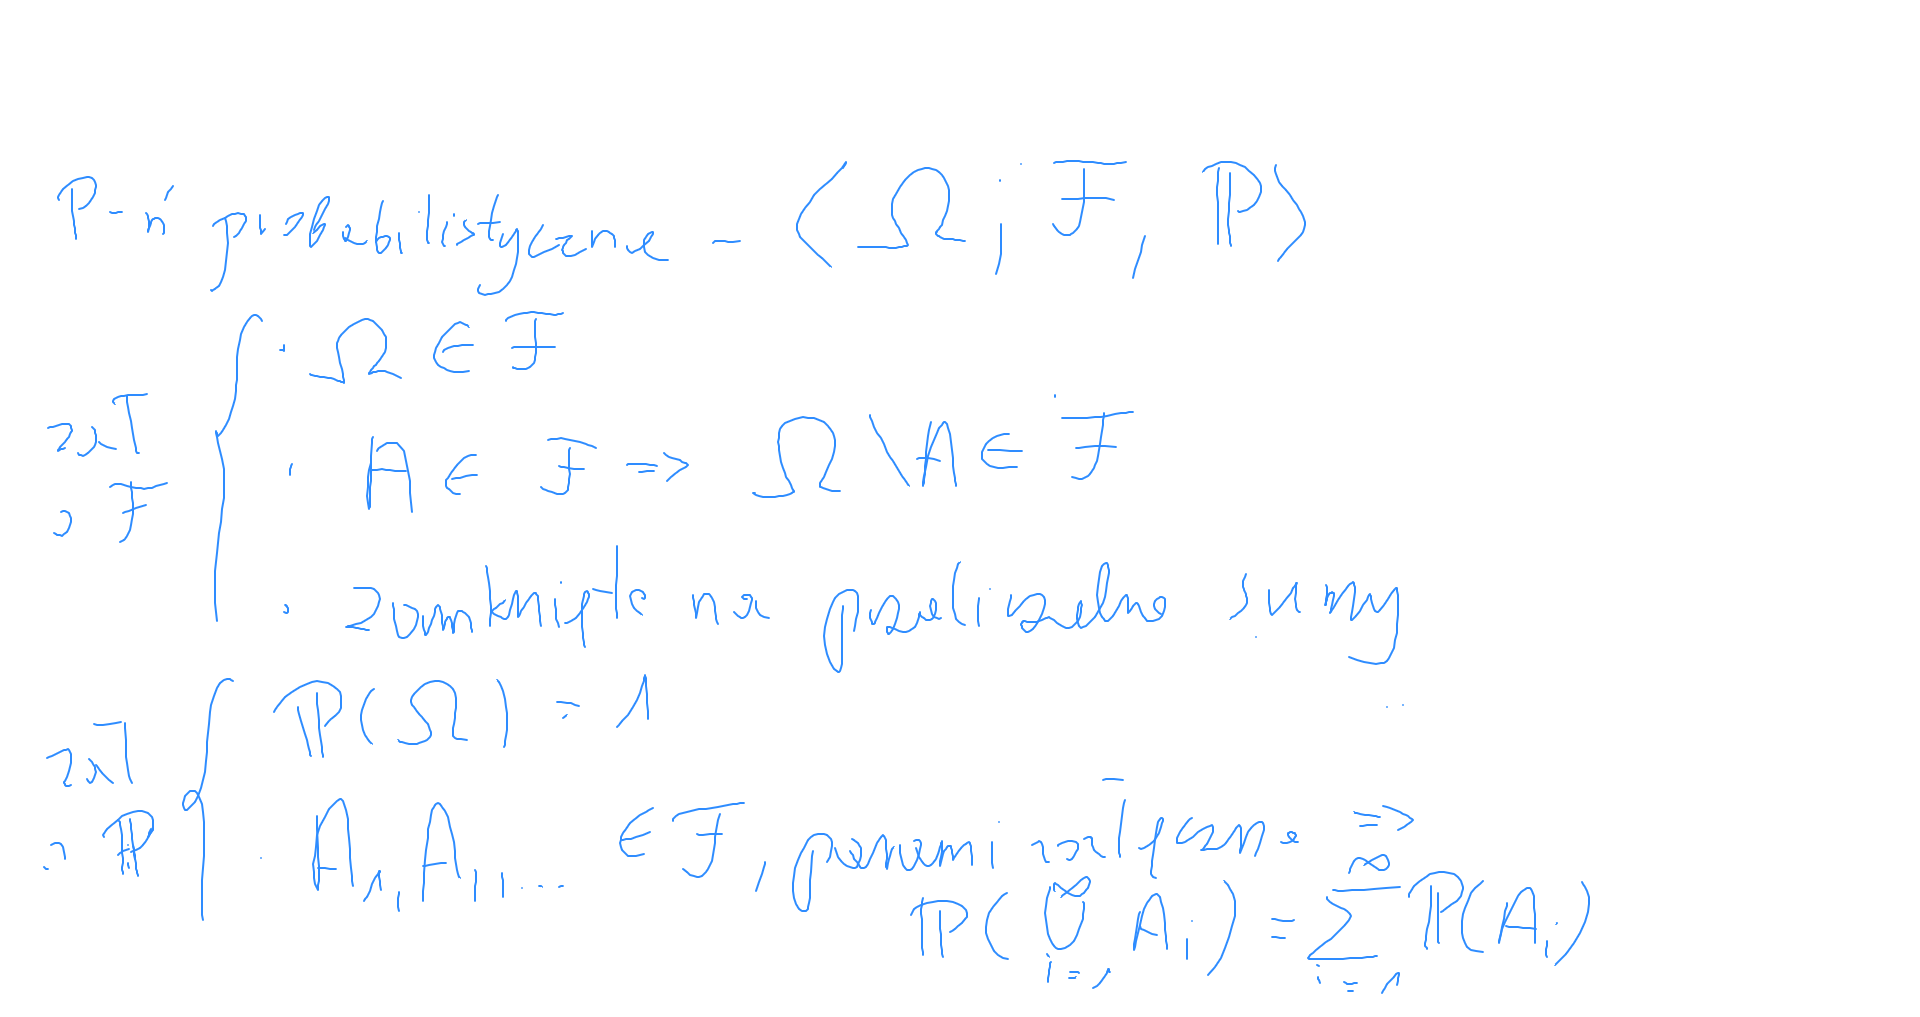 P-ń probabilistyczne - ⟨Ω, F, ℙ⟩
· Ω ∈ F
zał
· A ∈ F => Ω \ A ∈ F
o F
· zamknięte na przeliczalne sumy
ℙ(Ω) = 1
zał
o ℙ
· A₁, A₁, ... ∈ F, parami rozłączne =>
ℙ(⋃_{i=1}^{∞} A_i) = ∑_{i=1}^{∞} ℙ(A_i)